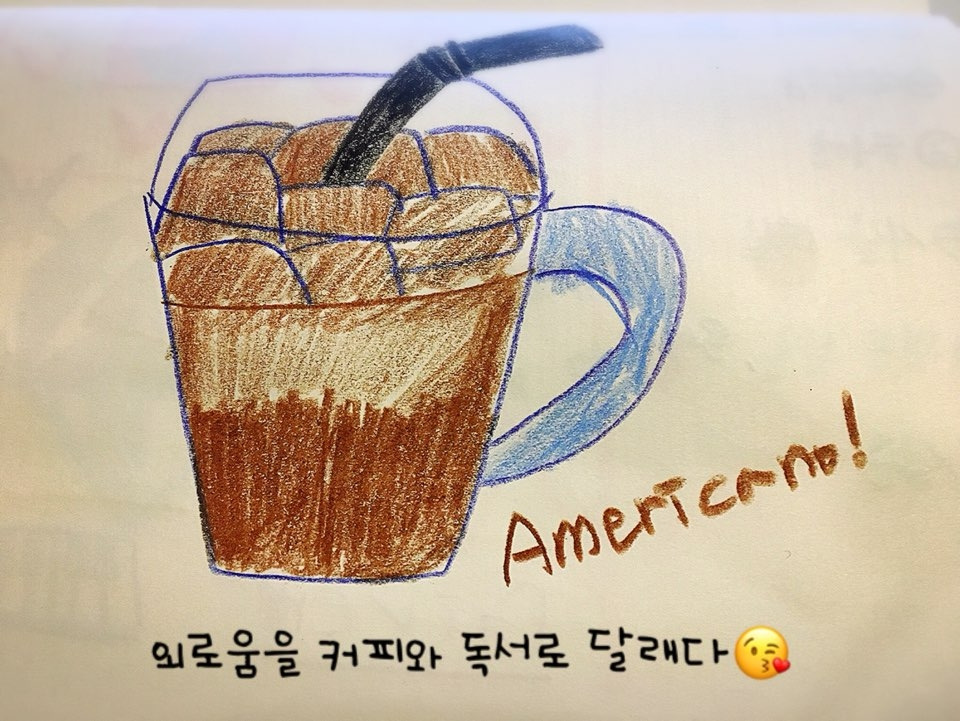 Americano!
외로움을 커피와 독서로 달래다😘